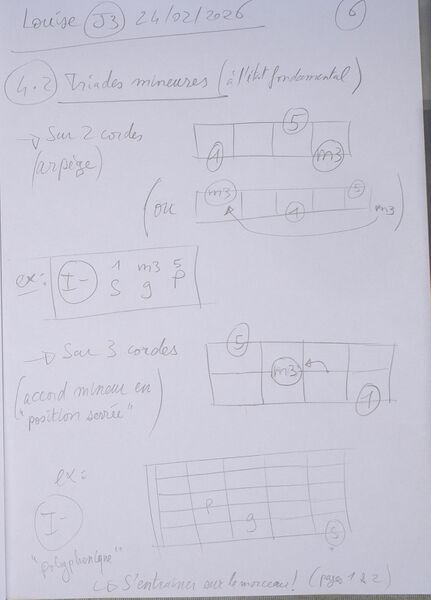 Louise J3 24/02/2026 6
4.2 Triades mineures (à l'état fondamental)
→ Sur 2 cordes
(arpège)
5
1 m3
(ou
m3 5
1
m3)
ex: I- 1 m3 5
S g P
→ Sur 3 cordes
(accord mineur en
"position serrée")
5
m3
1
ex:
I-
"polyphonique"
P
g
S
↳ S'entraîner sur le morceau! (pages 1 & 2)